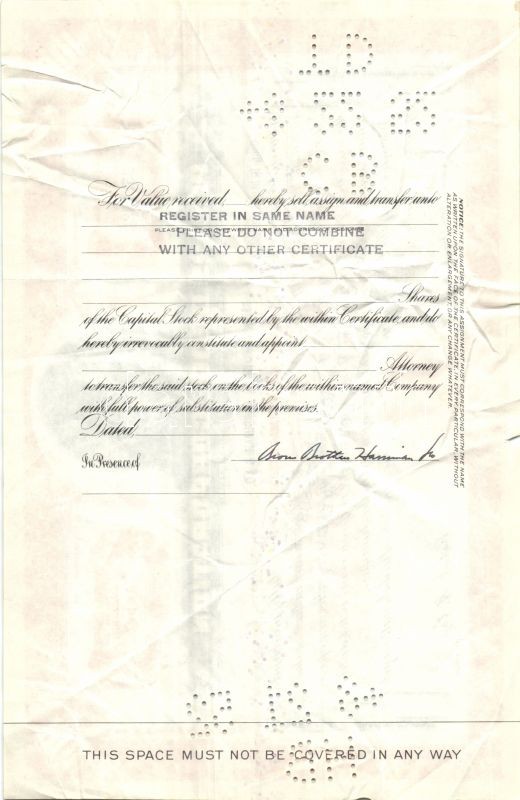 LD
CB
For Value received, hereby sell, assign and transfer unto
REGISTER IN SAME NAME
PLEASE DO NOT COMBINE
WITH ANY OTHER CERTIFICATE
Shares
of the Capital Stock represented by the within Certificate, and do
hereby irrevocably constitute and appoint
Attorney
to transfer the said stock on the books of the within-named Company
with full power of substitution in the premises.
Dated,
Brown Brothers Harriman &co
In Presence of
NOTICE: THE SIGNATURE TO THIS ASSIGNMENT MUST CORRESPOND WITH THE NAME
AS WRITTEN UPON THE FACE OF THE CERTIFICATE, IN EVERY PARTICULAR, WITHOUT
ALTERATION OR ENLARGEMENT, OR ANY CHANGE WHATEVER.
THIS SPACE MUST NOT BE COVERED IN ANY WAY